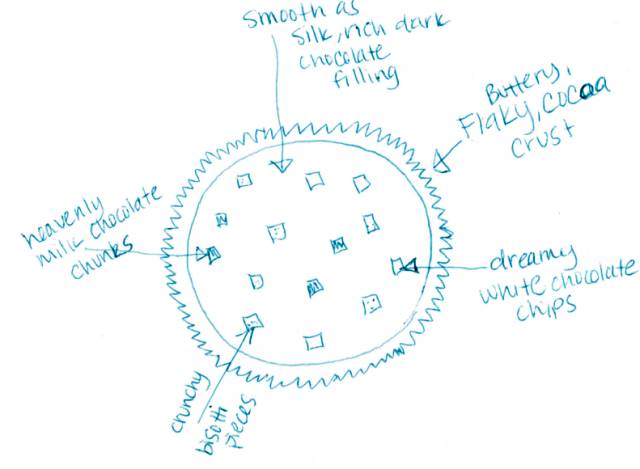 smooth as
silk, rich dark
chocolate
filling
Buttery,
Flaky, cocoa
crust
heavenly
milk chocolate
chunks
dreamy
white chocolate
chips
crunchy
bisotti
pieces